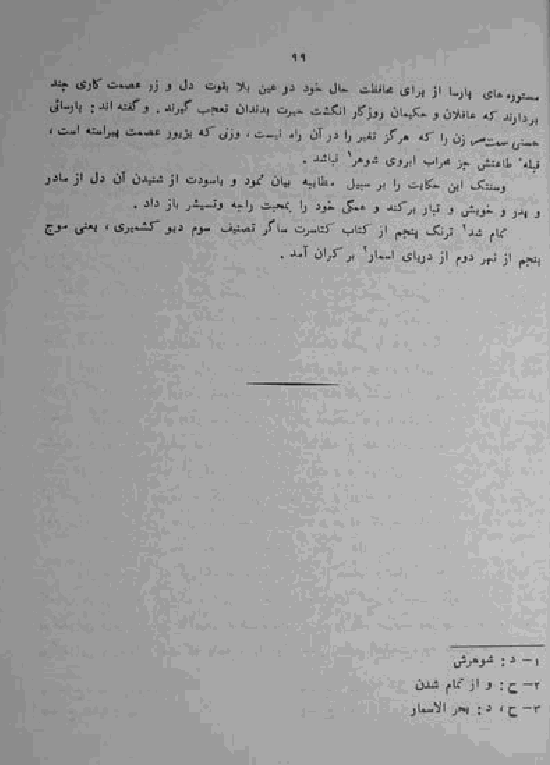 ۹۹
مستوره‌های پارسا از برای محافظت حال خود در عین بلا بقوت دل و زر عصمت کاری چند
بردارند که عاقلان و حکیمان روزگار انگشت حیرت بدندان تعجب گیرند. و گفته اند: پارسائی
حصنی است زن را که هرگز تغیر را در آن راه نیست، وزنی که بزیور عصمت پیراسته است،
قبلهٔ طاعتش جز محراب ابروی شوهر۱ نباشد.
وسنتک این حکایت را بر سبیل مطایبه بیان نمود و باسودت از شنیدن آن دل از مادر
و پدر و خویش و تبار برکند و همگی خود را بمحبت راجه وتسیشر باز داد.
تمام شد۲ ترنگ پنجم از کتاب کتاسرت ساگر تصنیف سوم دیو کشمیری، یعنی موج
پنجم از نهر دوم از دریای اسمار۳ بر کران آمد.
۱- د: شوهرش
۲- ح: و از تمام شدن
۳- ح، د: بحر الاسمار